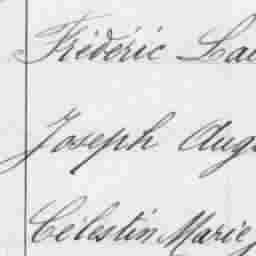 Frédéric
Joseph
Célestin Marie